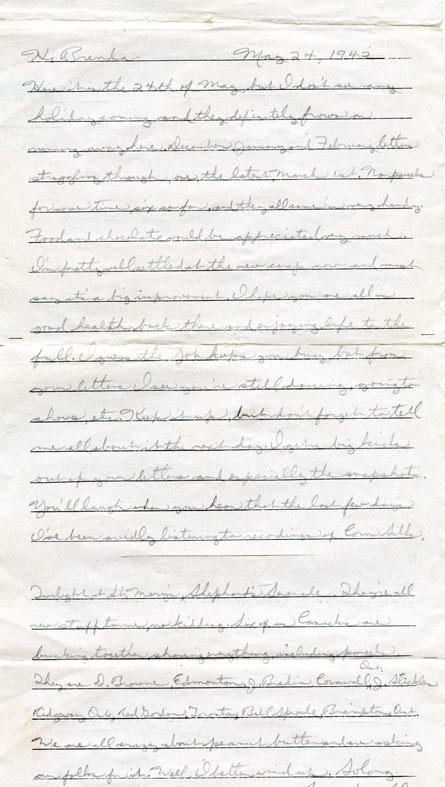 Hi, Brenda May 24, 1942
Here it is the 24th of May, but I don't see any
holiday coming and they definitely frown on
running away here. December January and February letters
straggling through, one, the latest, March 1st. No parcels
for some time, six so far, and they all came in very handy.
Food and chocolate would be appreciated very much.
I'm pretty well settled at the new camp now and must
say it's a big improvement. I hope you are all in
good health back there and enjoying life to the
full. I guess the job keeps you busy but from
your letters I see you're still dancing, going to
shows, etc. Keep it up, but don't forget to tell
me all about it the next day. I get a big kick
out of your letters and especially the snapshots.
You'll laugh when you hear that the last few days
I've been avidly listening to recordings of
Twilight at St. Shepherd's Serenade. They're all
new stuff to me, no kidding. Six of us Canucks are
bunking together, sharing everything, including parcels.
Ont.
They are D. Edmonton, J. Cornwall, J.
Ridgeway Ont, Red Gordon, Toronto, Bill Brampton, Ont.
We are all crazy about peanut butter and are asking
our folks for it. Well, I better wind up. So long